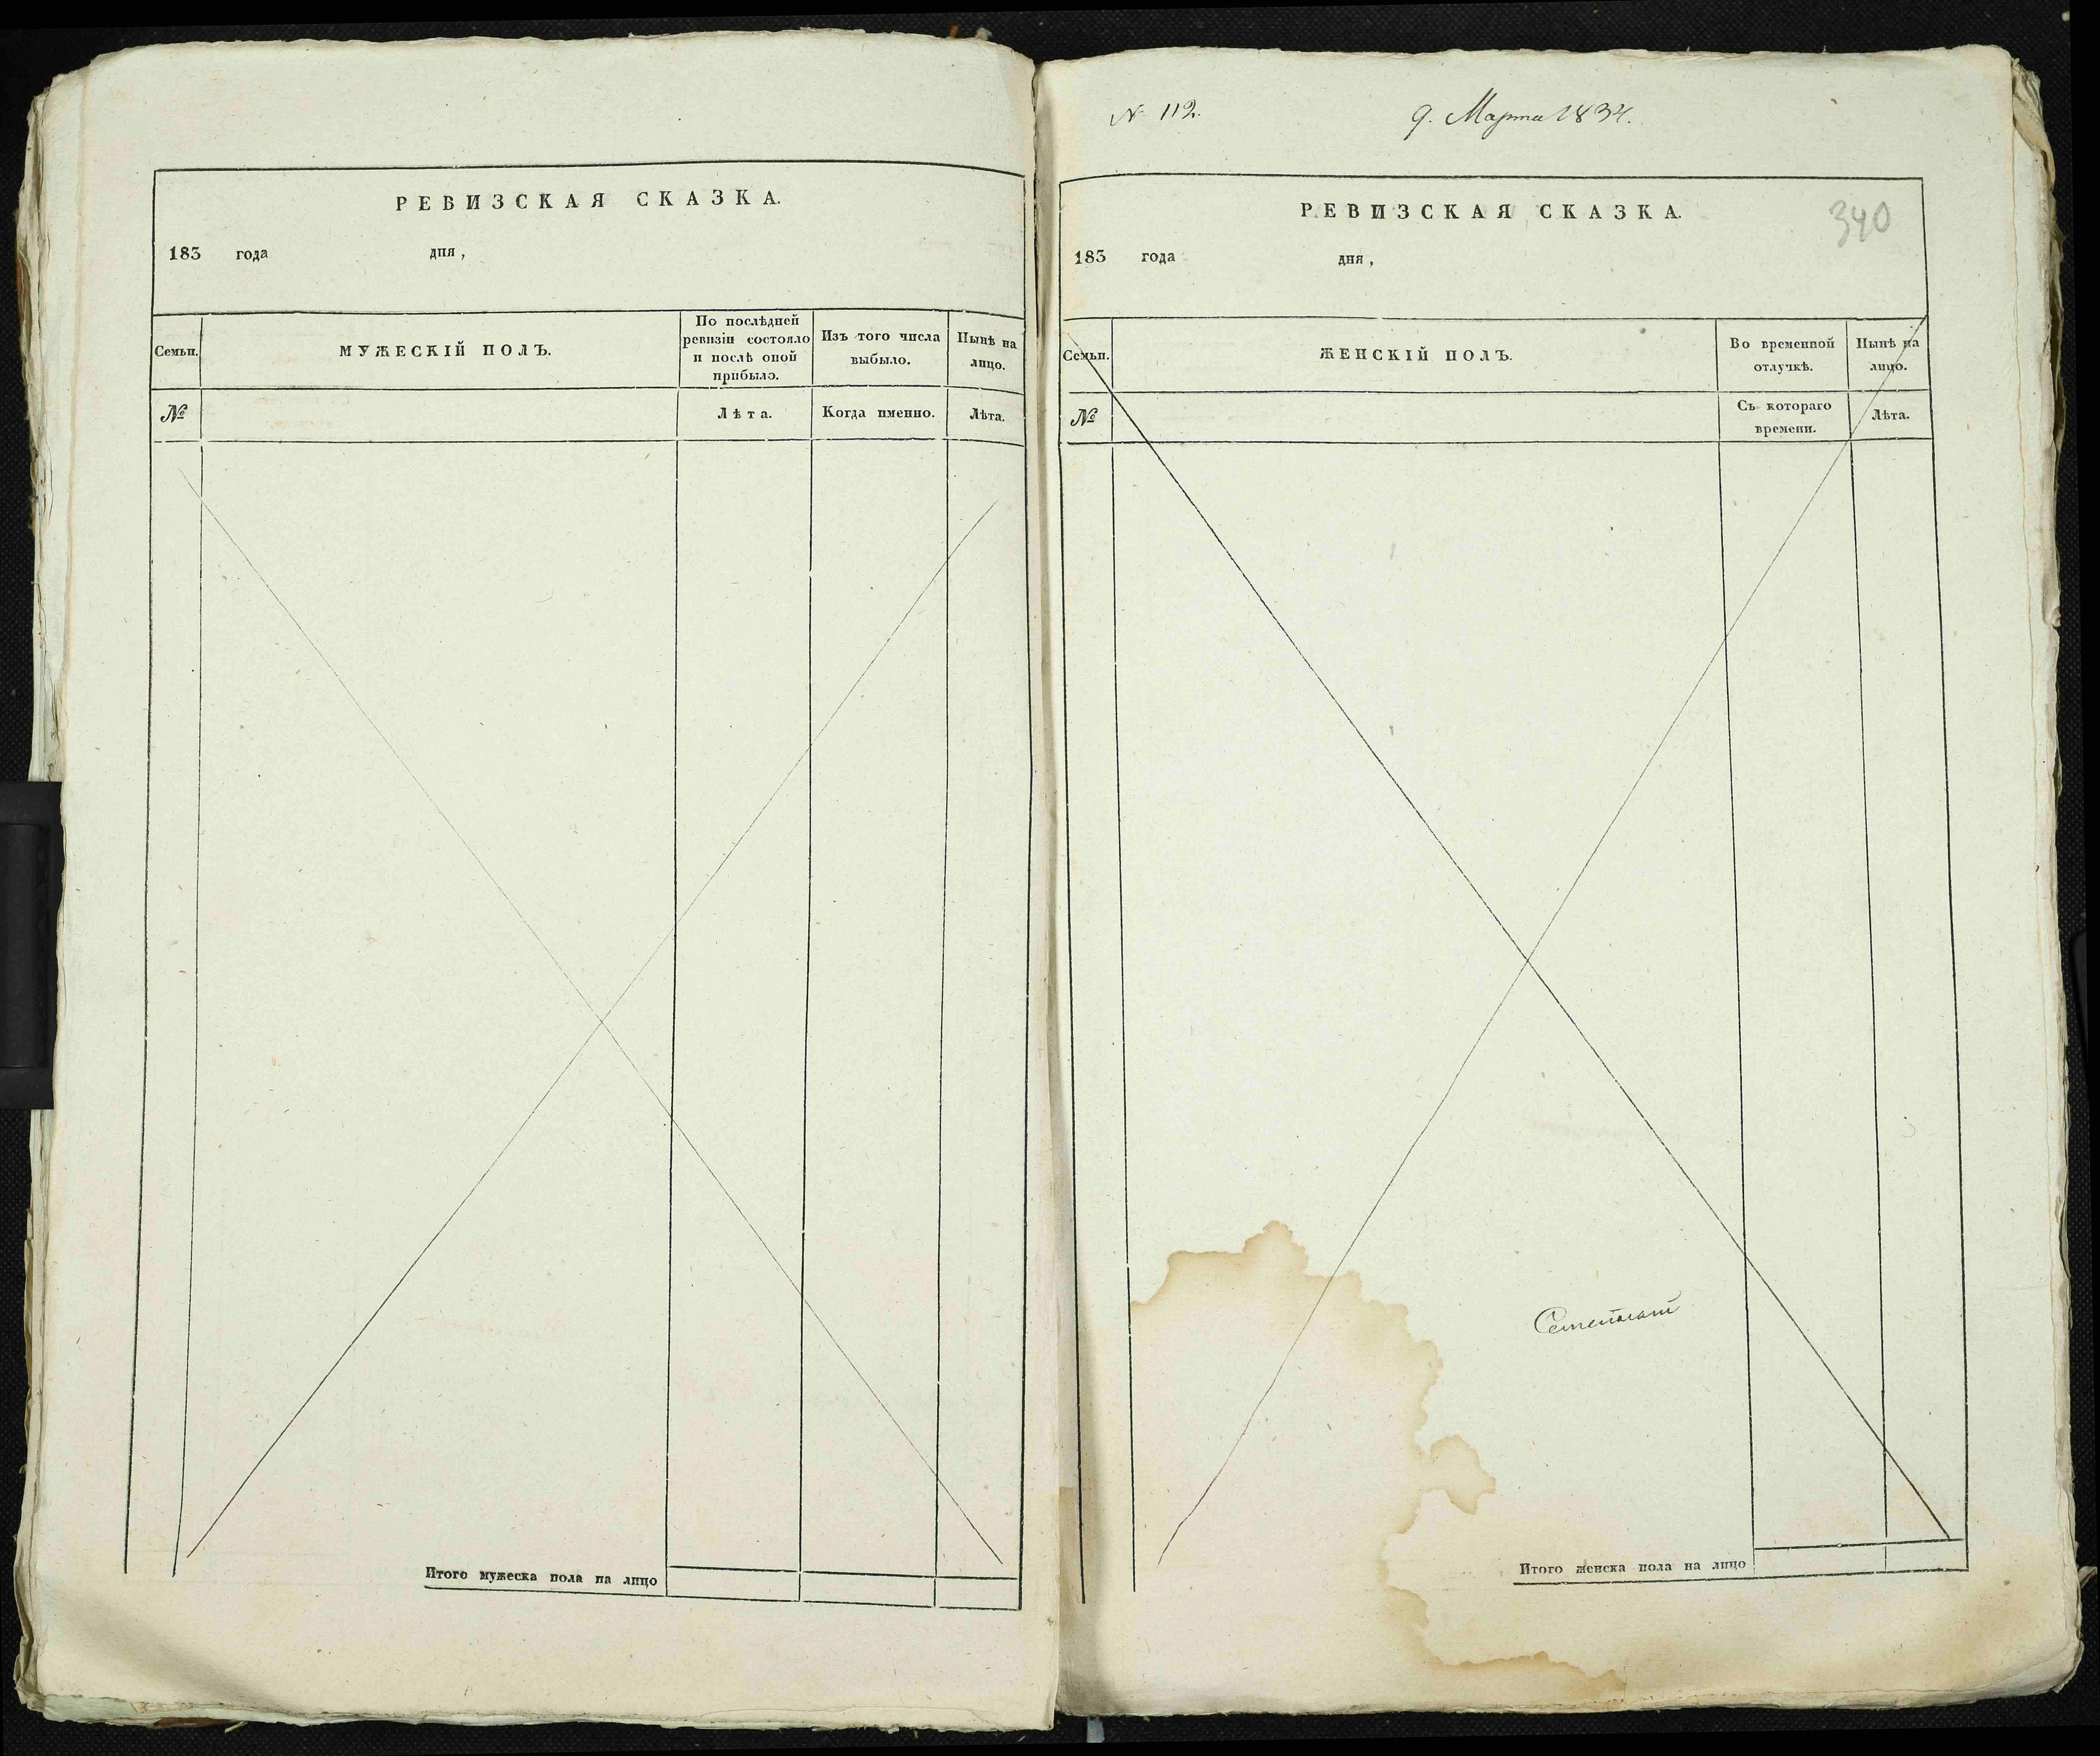 РЕВИЗСКАЯ СКАЗКА.
183 года дня,
Семьи.
МУЖЕСКІЙ ПОЛЪ.
По послѣдней
ревизіи состояло
и послѣ оной
прибыло.
Изъ того числа
выбыло.
Нынѣ на
лицо.
№
Лѣта.
Когда именно.
Лѣта.
Итого мужеска пола на лицо
№ 112.
9. Марта 1834.
РЕВИЗСКАЯ СКАЗКА.
340
183 года дня,
Семьи.
ЖЕНСКІЙ ПОЛЪ.
Во временной
отлучкѣ.
Нынѣ на
лицо.
№
Съ котораго
времени.
Лѣта.
Итого женска пола на лицо